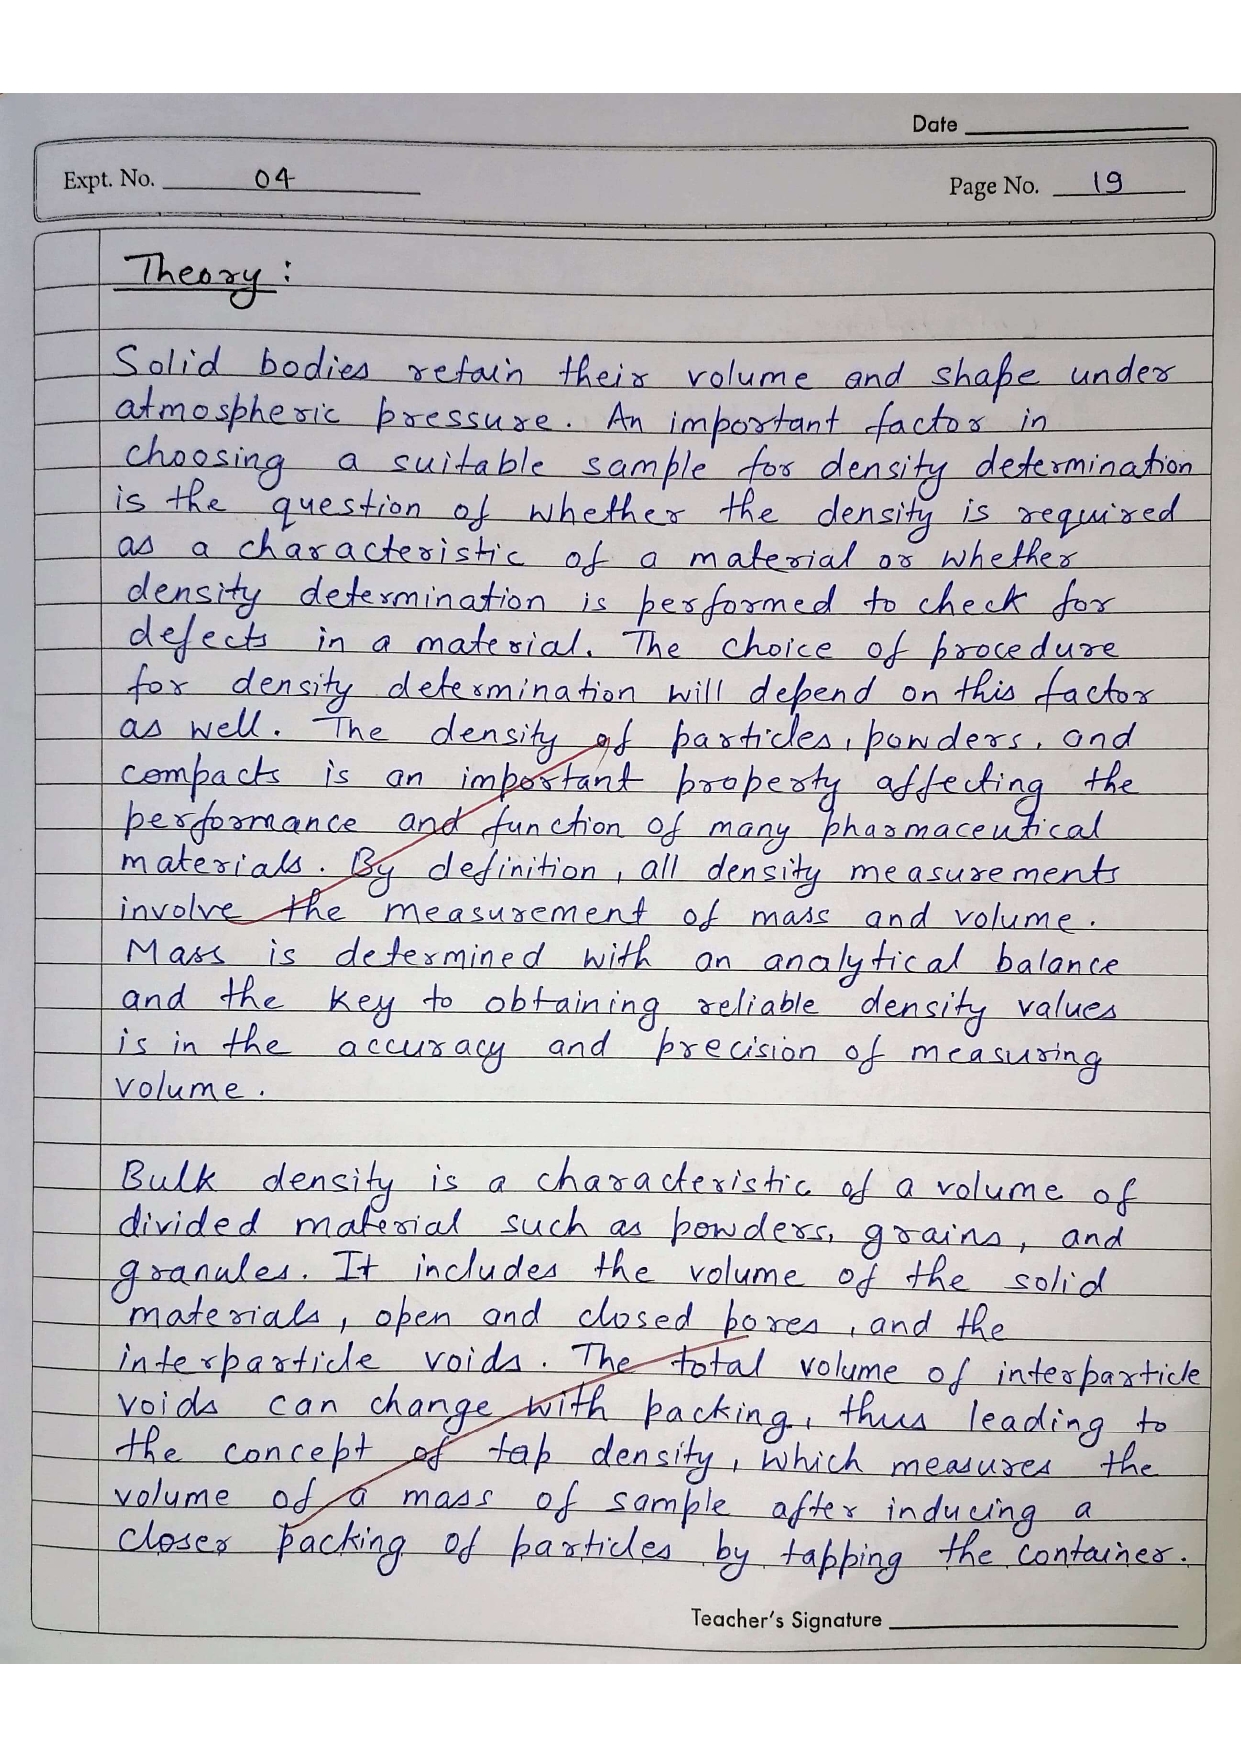 Date
Expt. No. 04
Page No. 19
Theory:
Solid bodies retain their volume and shape under
atmospheric pressure. An important factor in
choosing a suitable sample for density determination
is the question of whether the density is required
as a characteristic of a material or whether
density determination is performed to check for
defects in a material. The choice of procedure
for density determination will depend on this factor
as well. The density of particles, powders, and
compacts is an important property affecting the
performance and function of many pharmaceutical
materials. By definition, all density measurements
involve the measurement of mass and volume.
Mass is determined with an analytical balance
and the key to obtaining reliable density values
is in the accuracy and precision of measuring
volume.
Bulk density is a characteristic of a volume of
divided material such as powders, grains, and
granules. It includes the volume of the solid
materials, open and closed pores, and the
interparticle voids. The total volume of interparticle
voids can change with packing, thus leading to
the concept of tap density, which measures the
volume of a mass of sample after inducing a
closer packing of particles by tapping the container.
Teacher's Signature